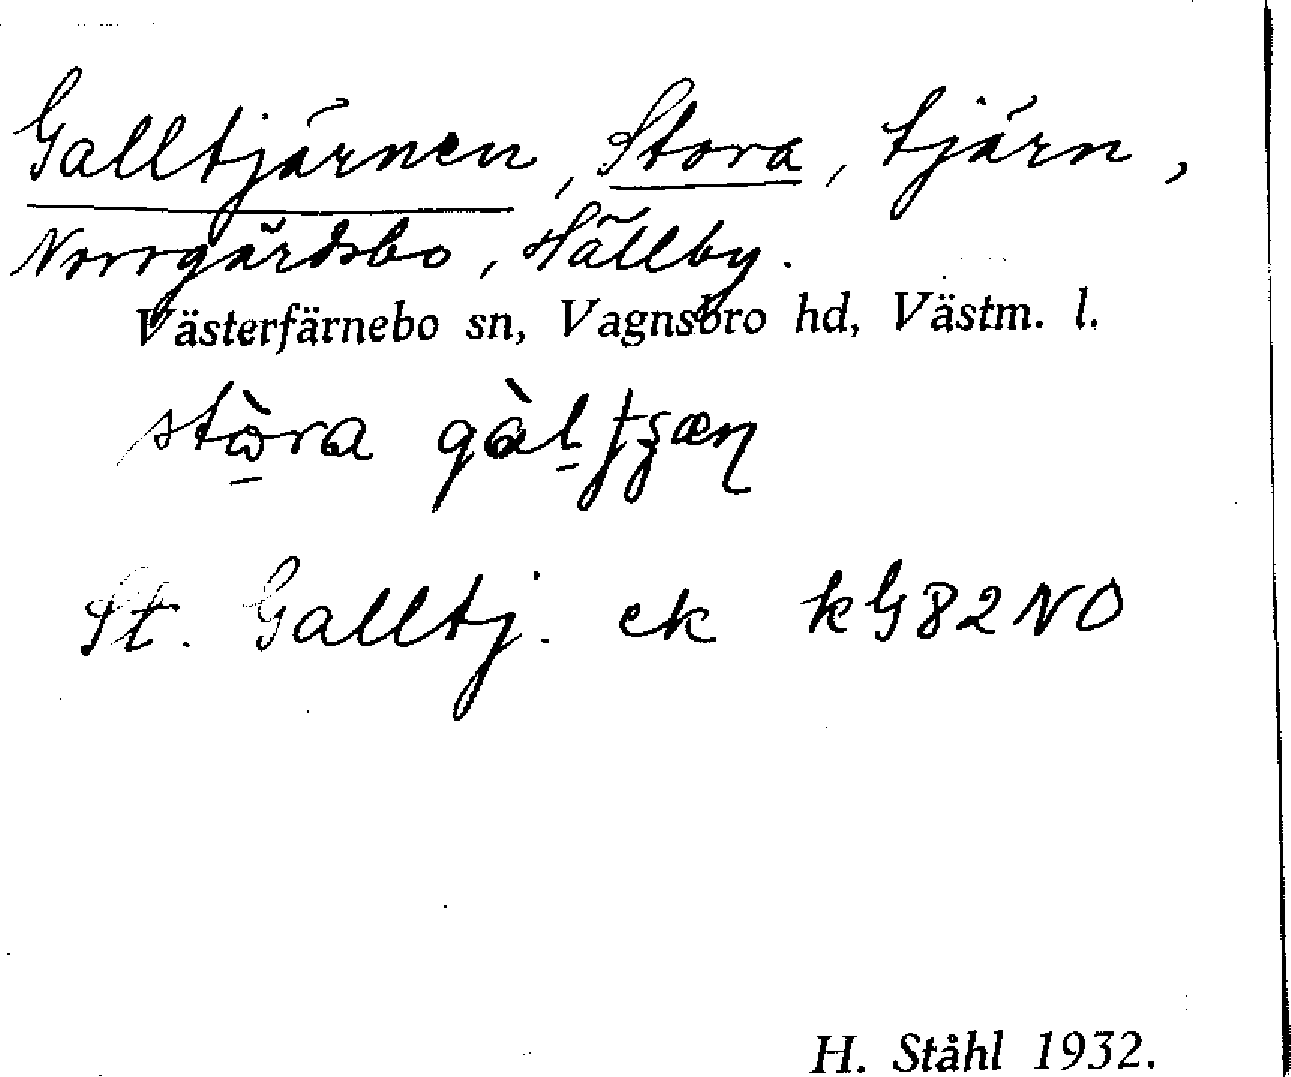 Galltjärnen, Stora, tjärn,
Norrgärdsbo, Hällby.
Västerfärnebo sn, Vagnsbro hd, Västm. l.
stὼra gàl
St. Galltj. ek kG82NO
H. Ståhl 1932.